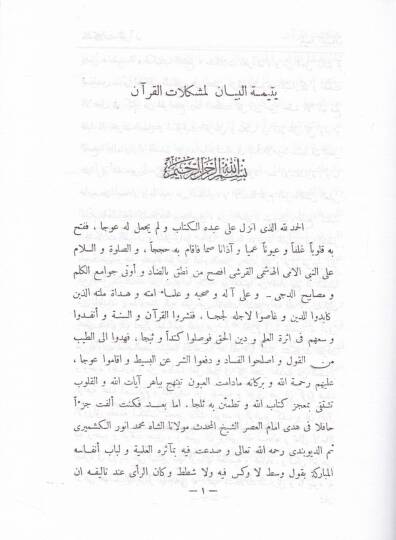 يتيمة البيان لمشكلات القرآن
بسم الله الرحمن الرحيم
الحمد لله الذى انزل على عبده الكتاب و لم يجعل له عوجا ، ففتح
به قلوباً غلفاً و عيوناً عميا و آذانا صما فاقام به حججاً ، و الصلوة و السلام
على النبى الامى الهاشمى القرشى افصح من نطق بالضاد و أوتى جوامع الكلم
و مصابيح الدجى ـ و على آله و صحبه و علماء امته و هداة ملته الذين
كابدوا للدين و غاصوا لاجله لججا ، فنشروا القرآن و السنة و أنفدوا
وسعهم فى اثرة العلم و دين الحق فوصلوا كنداً و ثبجا ، فهدوا الى الطيب
من القول و اصلحوا الفساد و دفعوا الشر عن البسيط و اقاموا عوجا ،
عليهم رحمة الله و بركاته مادامت العيون تبتهج بباهر آيات الله و القلوب
تشتفى بمعجز كتاب الله و تطمئن به ثلجا . اما بعد فكنت ألفت جزءاً
حافلا فى هدى امام العصر الشيخ المحدث مولانا الشاه محمد انور الكشميرى
ثم الديوبندى رحمه الله تعالى و صدعت فيه بمآثره العلمية و لباب أنفاسه
المباركة بقول وسط لا وكس فيه ولا شطط وكان الرأى عند تاليفه ان
— ١ —